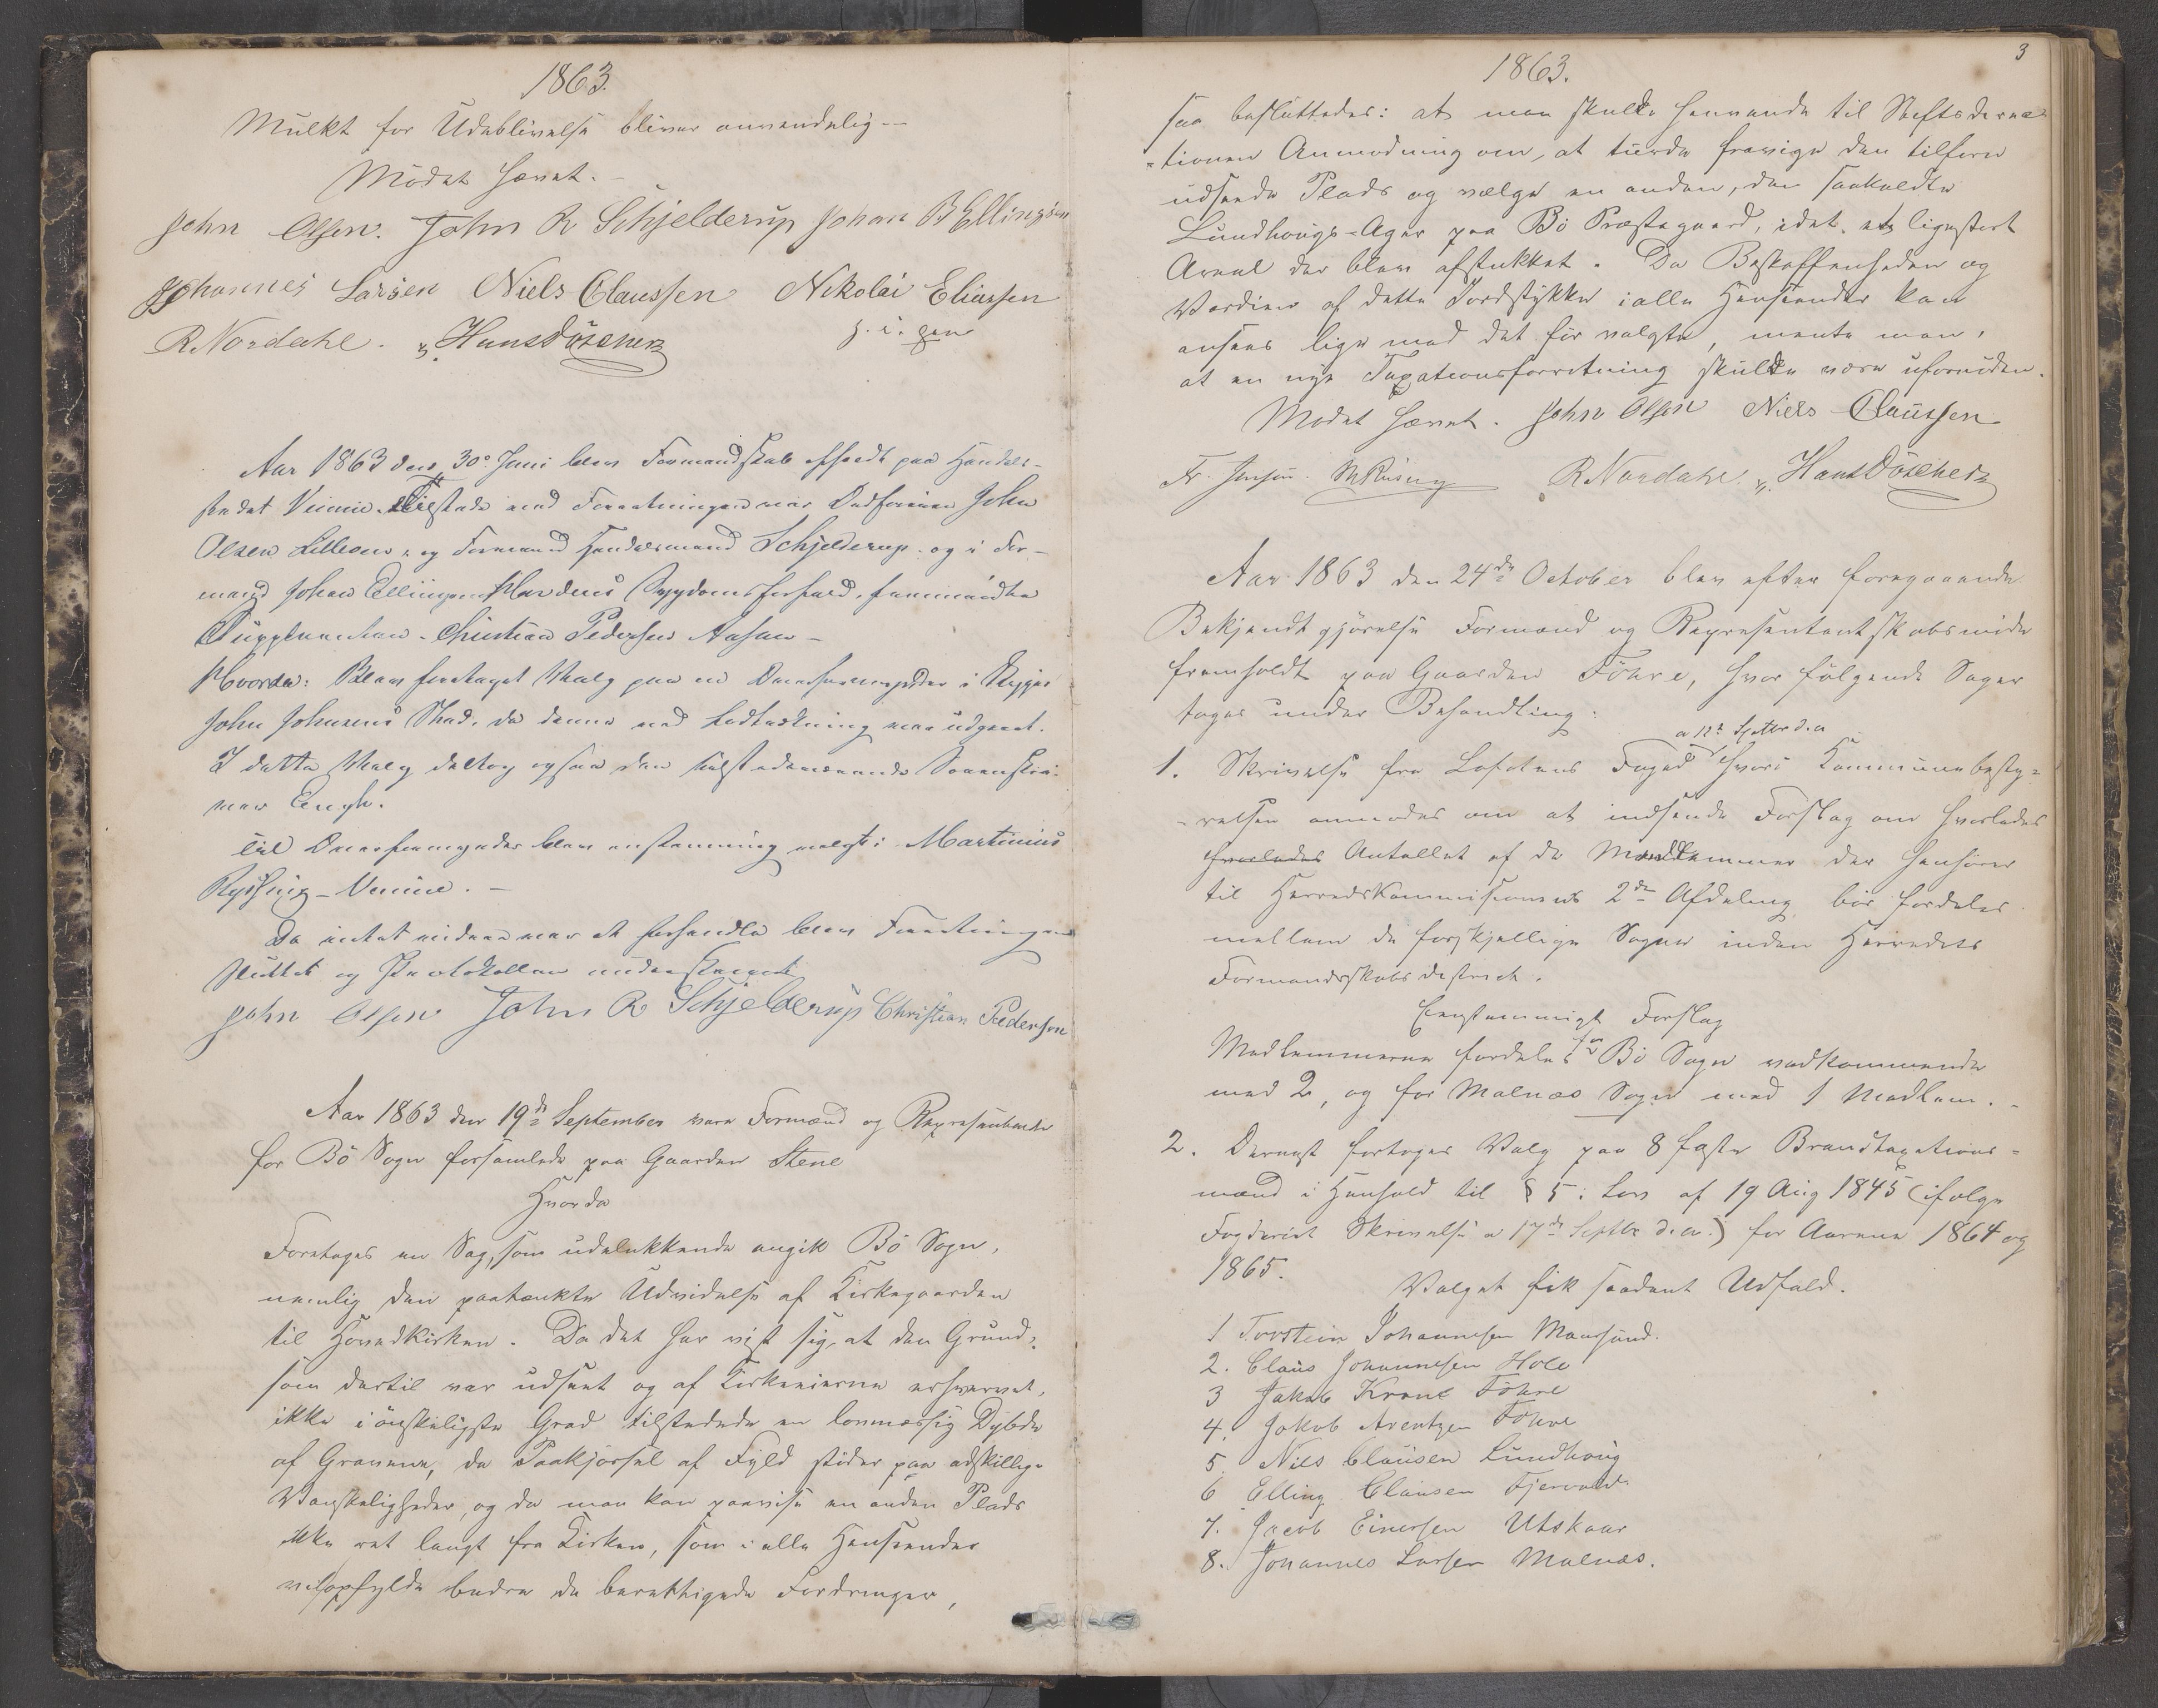 1863.
Mulkt for Udeblivelse bliver anvendelig –
Mödet hævet. –
John Olsen. John R Schjelderup Johan B Ellingsen
Johannes Larsen Niels Claussen Nikolai Eliassen
R. Nordahl. Hans Döscher
Aar 1863 den 30te Juni blev Formandskab afholdt paa Handels-
stedet Vinie. Tilstede ved Forretningen var Ordföreren John
Olsen og Formand Handelsmand Schjelderup og i For-
mand Johan Ellingsen Sygdomsforfald, fremmödte
Suppleanten Christian Pedersen Aasan –
Hvorda: Blev foretaget Valg paa en Overformynder i
John Johnsens Sted, da denne ved Lodtrækning var udgaaet.
I dette Valg deltog ogsaa den tilstedeværende Sorenskri-
ver Engh.
Til Overformynder blev enstemmig valgt: Martinus
Rysting – Vinie. –
Da intet videre var at forhandle blev Forretningen
sluttet og Protokollen underskrevet
John Olsen John R Schjelderup Christian Pedersen
Aar 1863 den 19de September vare Formænd og Repræsentanter
for Bö Sogn forsamlede paa Gaarden Stene
Hvorda
Foretoges en Sag, som udelukkende angik Bö Sogn,
nemlig den paatænkte Udvidelse af Kirkegaarden
til Hovedkirken. Da det har vist sig, at den Grund,
som dertil var udseet og af Kirkeeierne erhvervet,
ikke i önskeligste Grad tilstedede en lovmæssig Dybde
af Gravene, da Paakjörsel af Fyld stöder paa adskillige
Vanskeligheder, og da man kan paavise en anden Plads
ikke ret langt fra Kirken, som i alle Henseender
vil opfylde bedre de berettigede Fordringer,
3
1863.
saa besluttedes: at man skulde henvende til Stiftsdirec
-tionen Anmodning om, at turde fravige den tilforn
udseede Plads og vælge en anden, den saakaldte
Lundhougs-Ager paa Bö Præstegaard, idet et ligestort
Areal der blev afstukket. Da Beskaffenheden og
Værdien af dette Jordstykke i alle Henseender kan
ansees lige med det för valgte, mente man,
at en nye Taxationsforretning skulde være ufornöden.
Mödet hævet. John Olsen Niels Claussen
Fr. Jensen. R Nordahl. Hans Döscher
Aar 1863 den 24de October blev efter foregaaende
Bekjendtgjörelse Formænd og Repræsentantskabsmöde
fremholdt paa Gaarden Föhre, hvor fölgende Sager
toges under Behandling:
a 12te Septbr d.a
1. Skrivelse fra Lofotens Foged hvori Kommunebesty-
-relsen anmodes om at indsende Forslag om hvorledes
hvorledes Antallet af de Medlemmer der henhörer
til Herredskommissionens 2den Afdeling bör fordeles
mellem de forskjellige Sogne inden Herredets
Formandsskabsdistrict.
Eenstemmigt Forslag
Medlemmerne fordeles for Bö Sogn vedkommende
med 2, og for Malnæs Sogn med 1 Medlem. –
2. Dernæst fortoges Valg paa 8 faste Brandtaxations-
mænd i Henhold til § 5 i Lov af 19 Aug 1845 (ifölge
Fogderiets Skrivelse a 17de Septbr d.a.) for Aarene 1864 og
1865.
Valget fik saadant Udfald.
1 Torstein Johannesen Maursund.
2. Claus Johannesen Hole
3 Jakob Krane Föhre
4. Jakob Arentzen Föhre
5. Nils Clausen Lundhoug
6 Elling Clausen Fjervold.
7. Jacob Einersen Utskaar
8. Johannes Larsen Malnæs.